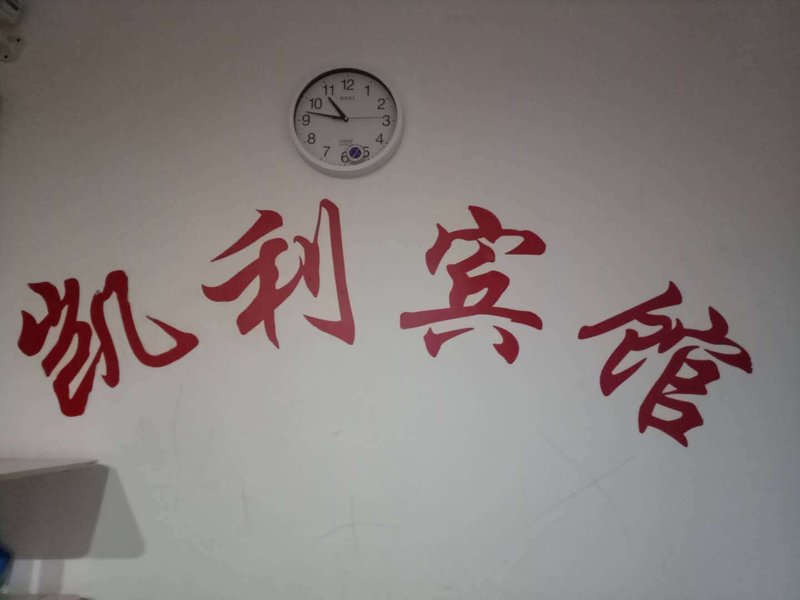 12
1
2
3
4
5
6
7
8
9
10
11
凯利宾馆